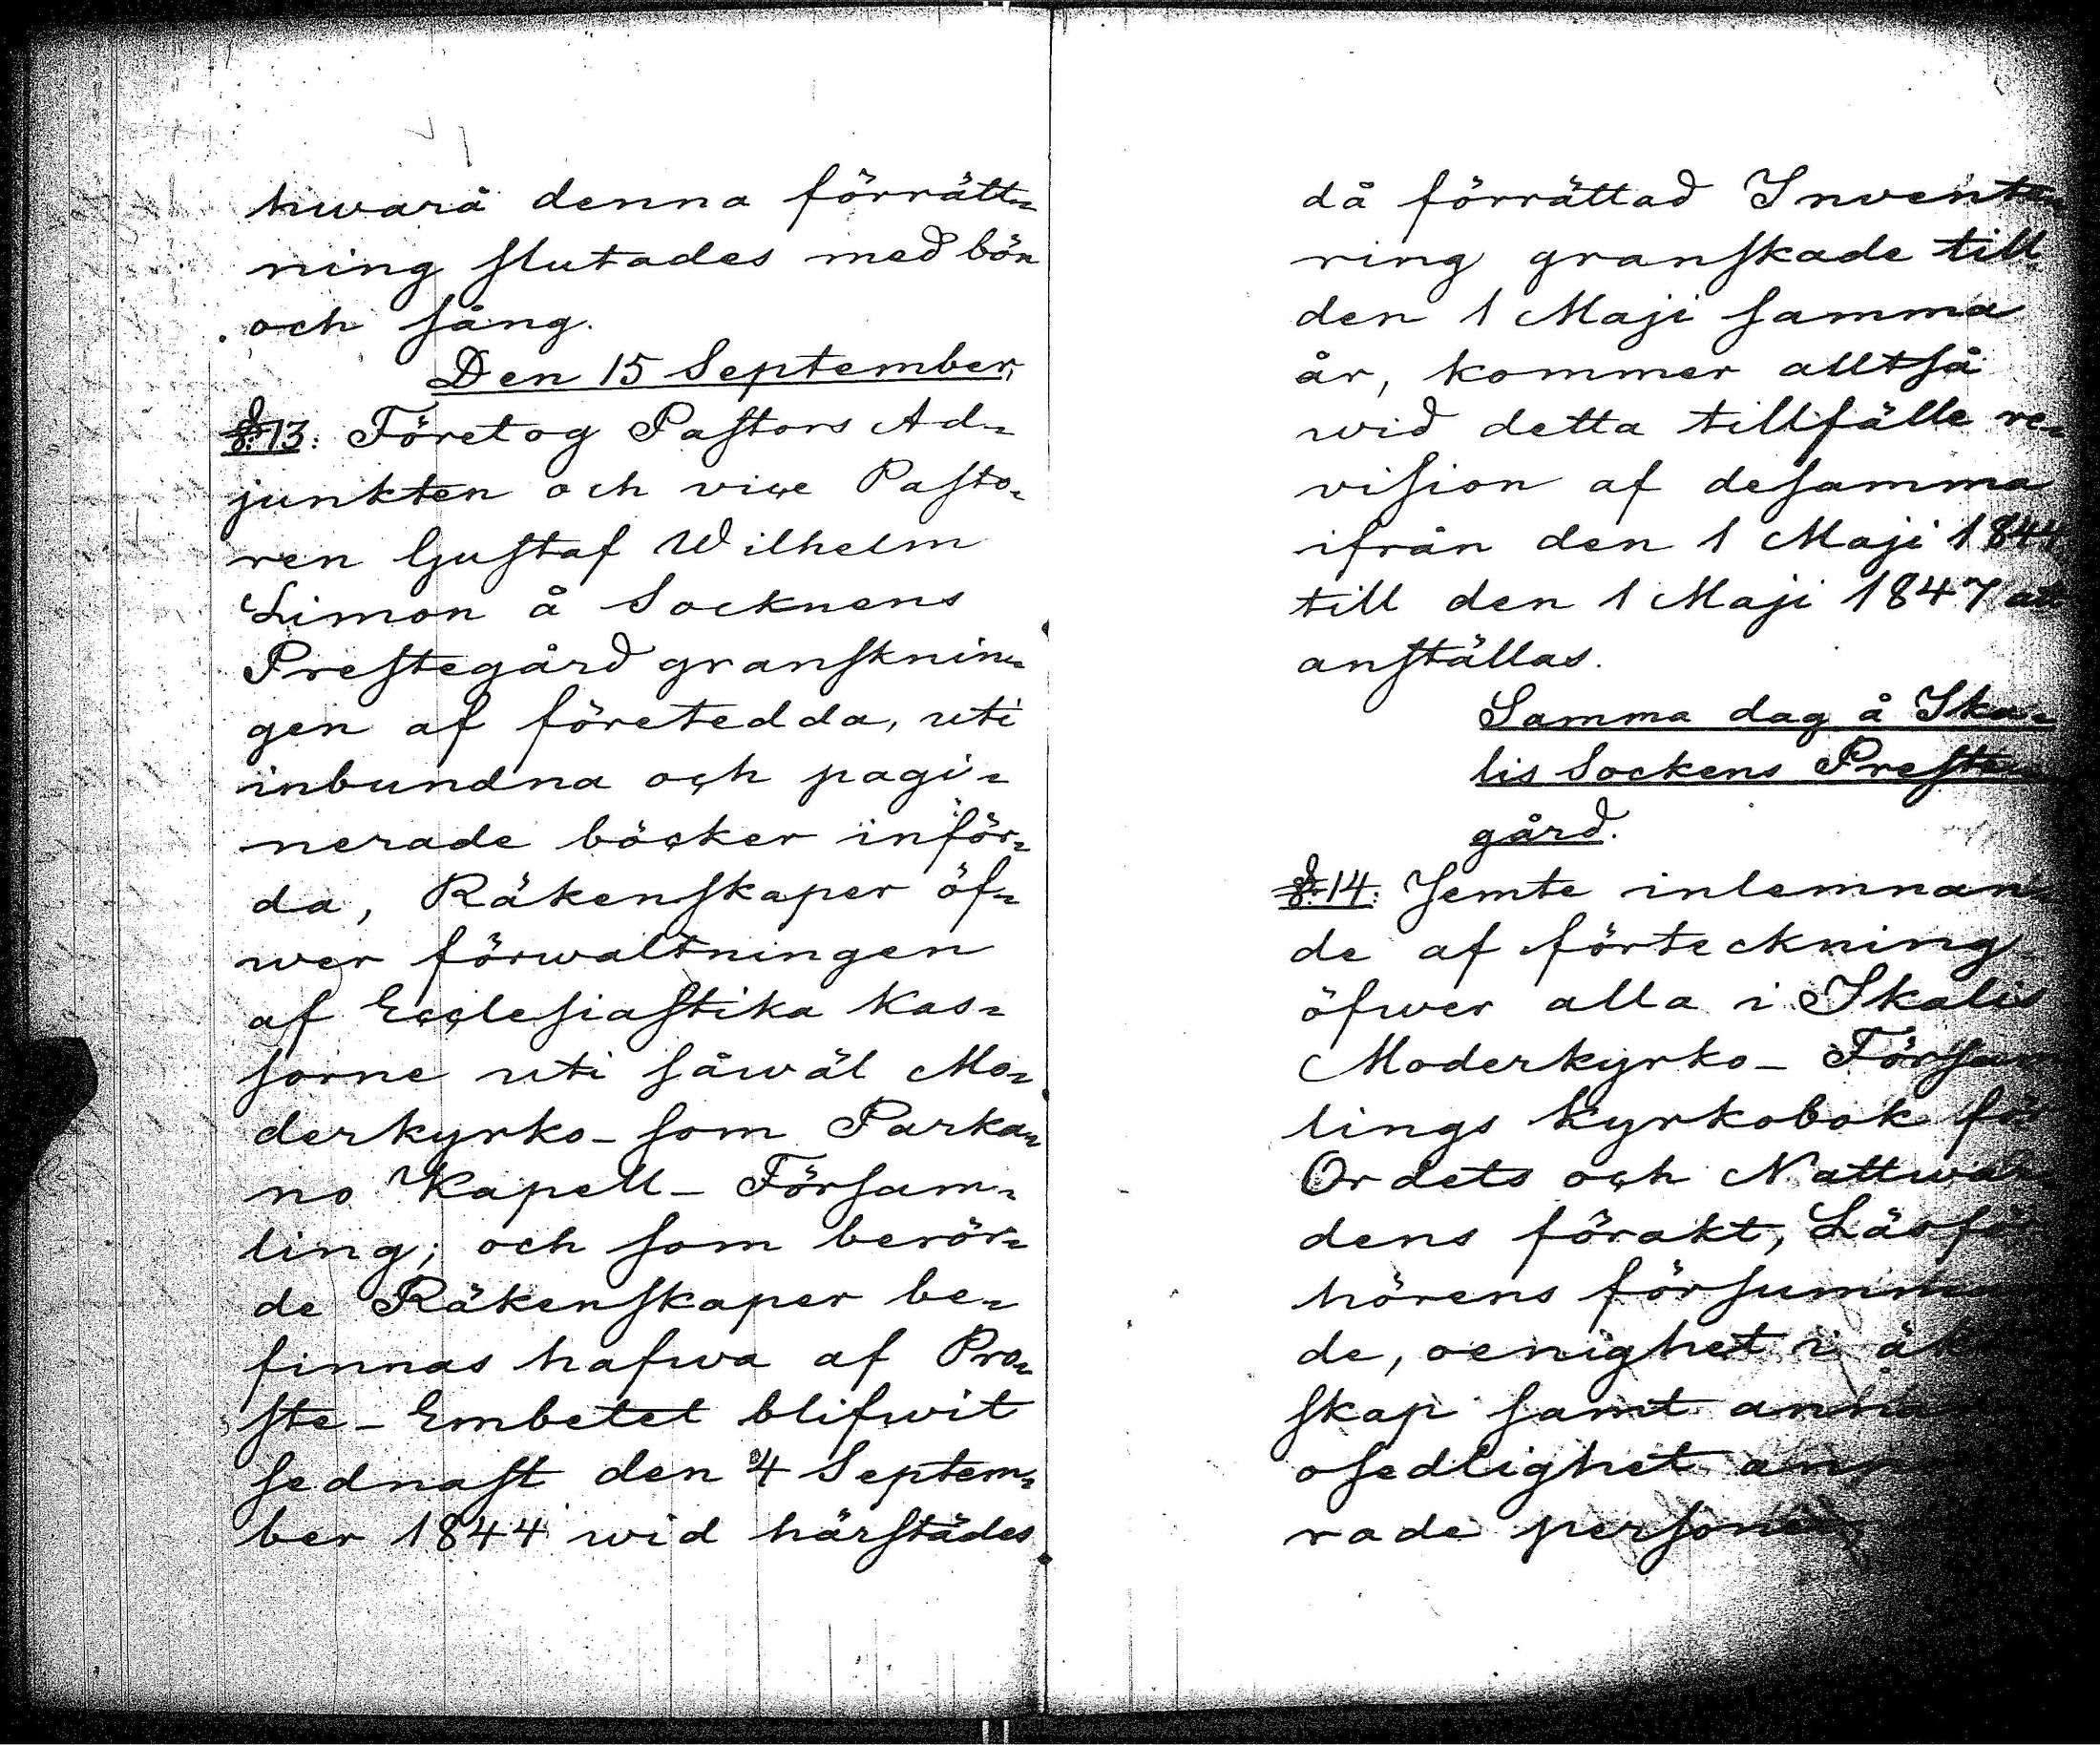 hwarå denna förrätt-
ning slutades med bön
och sång.
Den 15 September,
§. 13: Företog Pastors Ad-
junkten och vice Pasto-
ren Gustaf Wilhelm
Limon å Socknens
Prestegård gransknin-
gen af företedda, uti
inbundna och pagi-
nerade böcker inför-
da, Räkenskaper öf-
wer förwaltningen
af Ecclesiastika Kas-
sorne uti såwäl Mo-
derkyrko- som Parka-
no Kapell- Försam-
ling; och som berör-
de Räkenskaper be-
finnas hafwa af Pro-
ste- Embetet blifwit
sednast den 4 Septem-
ber 1844 wid härstädes
då förrättad Invente-
ring granskade till
den 1 Maji samma
år, kommer alltså
wid detta tillfälle re-
vision af desamma
ifrån den 1 Maji 1844
till den 1 Maji 1847 att
anställas.
Samma dag å Ika-
lis Sockens Preste-
gård.
§. 14: Jemte inlemnan-
de af förteckning
öfwer alla i Ikalis
Moderkyrko- Försam
lings Kyrkobok för
Ordets och Nattwar-
dens förakt, Läsför
hörens försumman
de, oenighet i äkten
skap samt annan
osedlighet
rade personer,